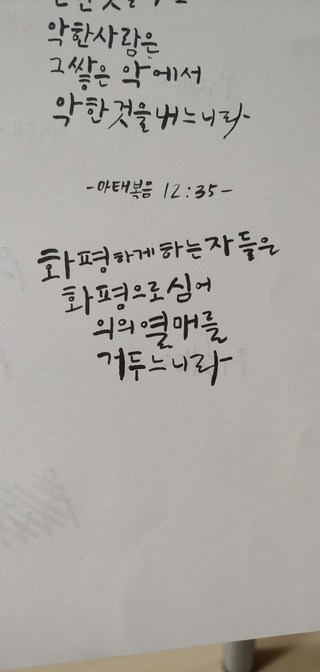 악한사람은
그쌓은 악에서
악한것을 내느니라
-마태복음 12:35-
화평하게 하는자들은
화평으로심어
의의 열매를
거두느니라